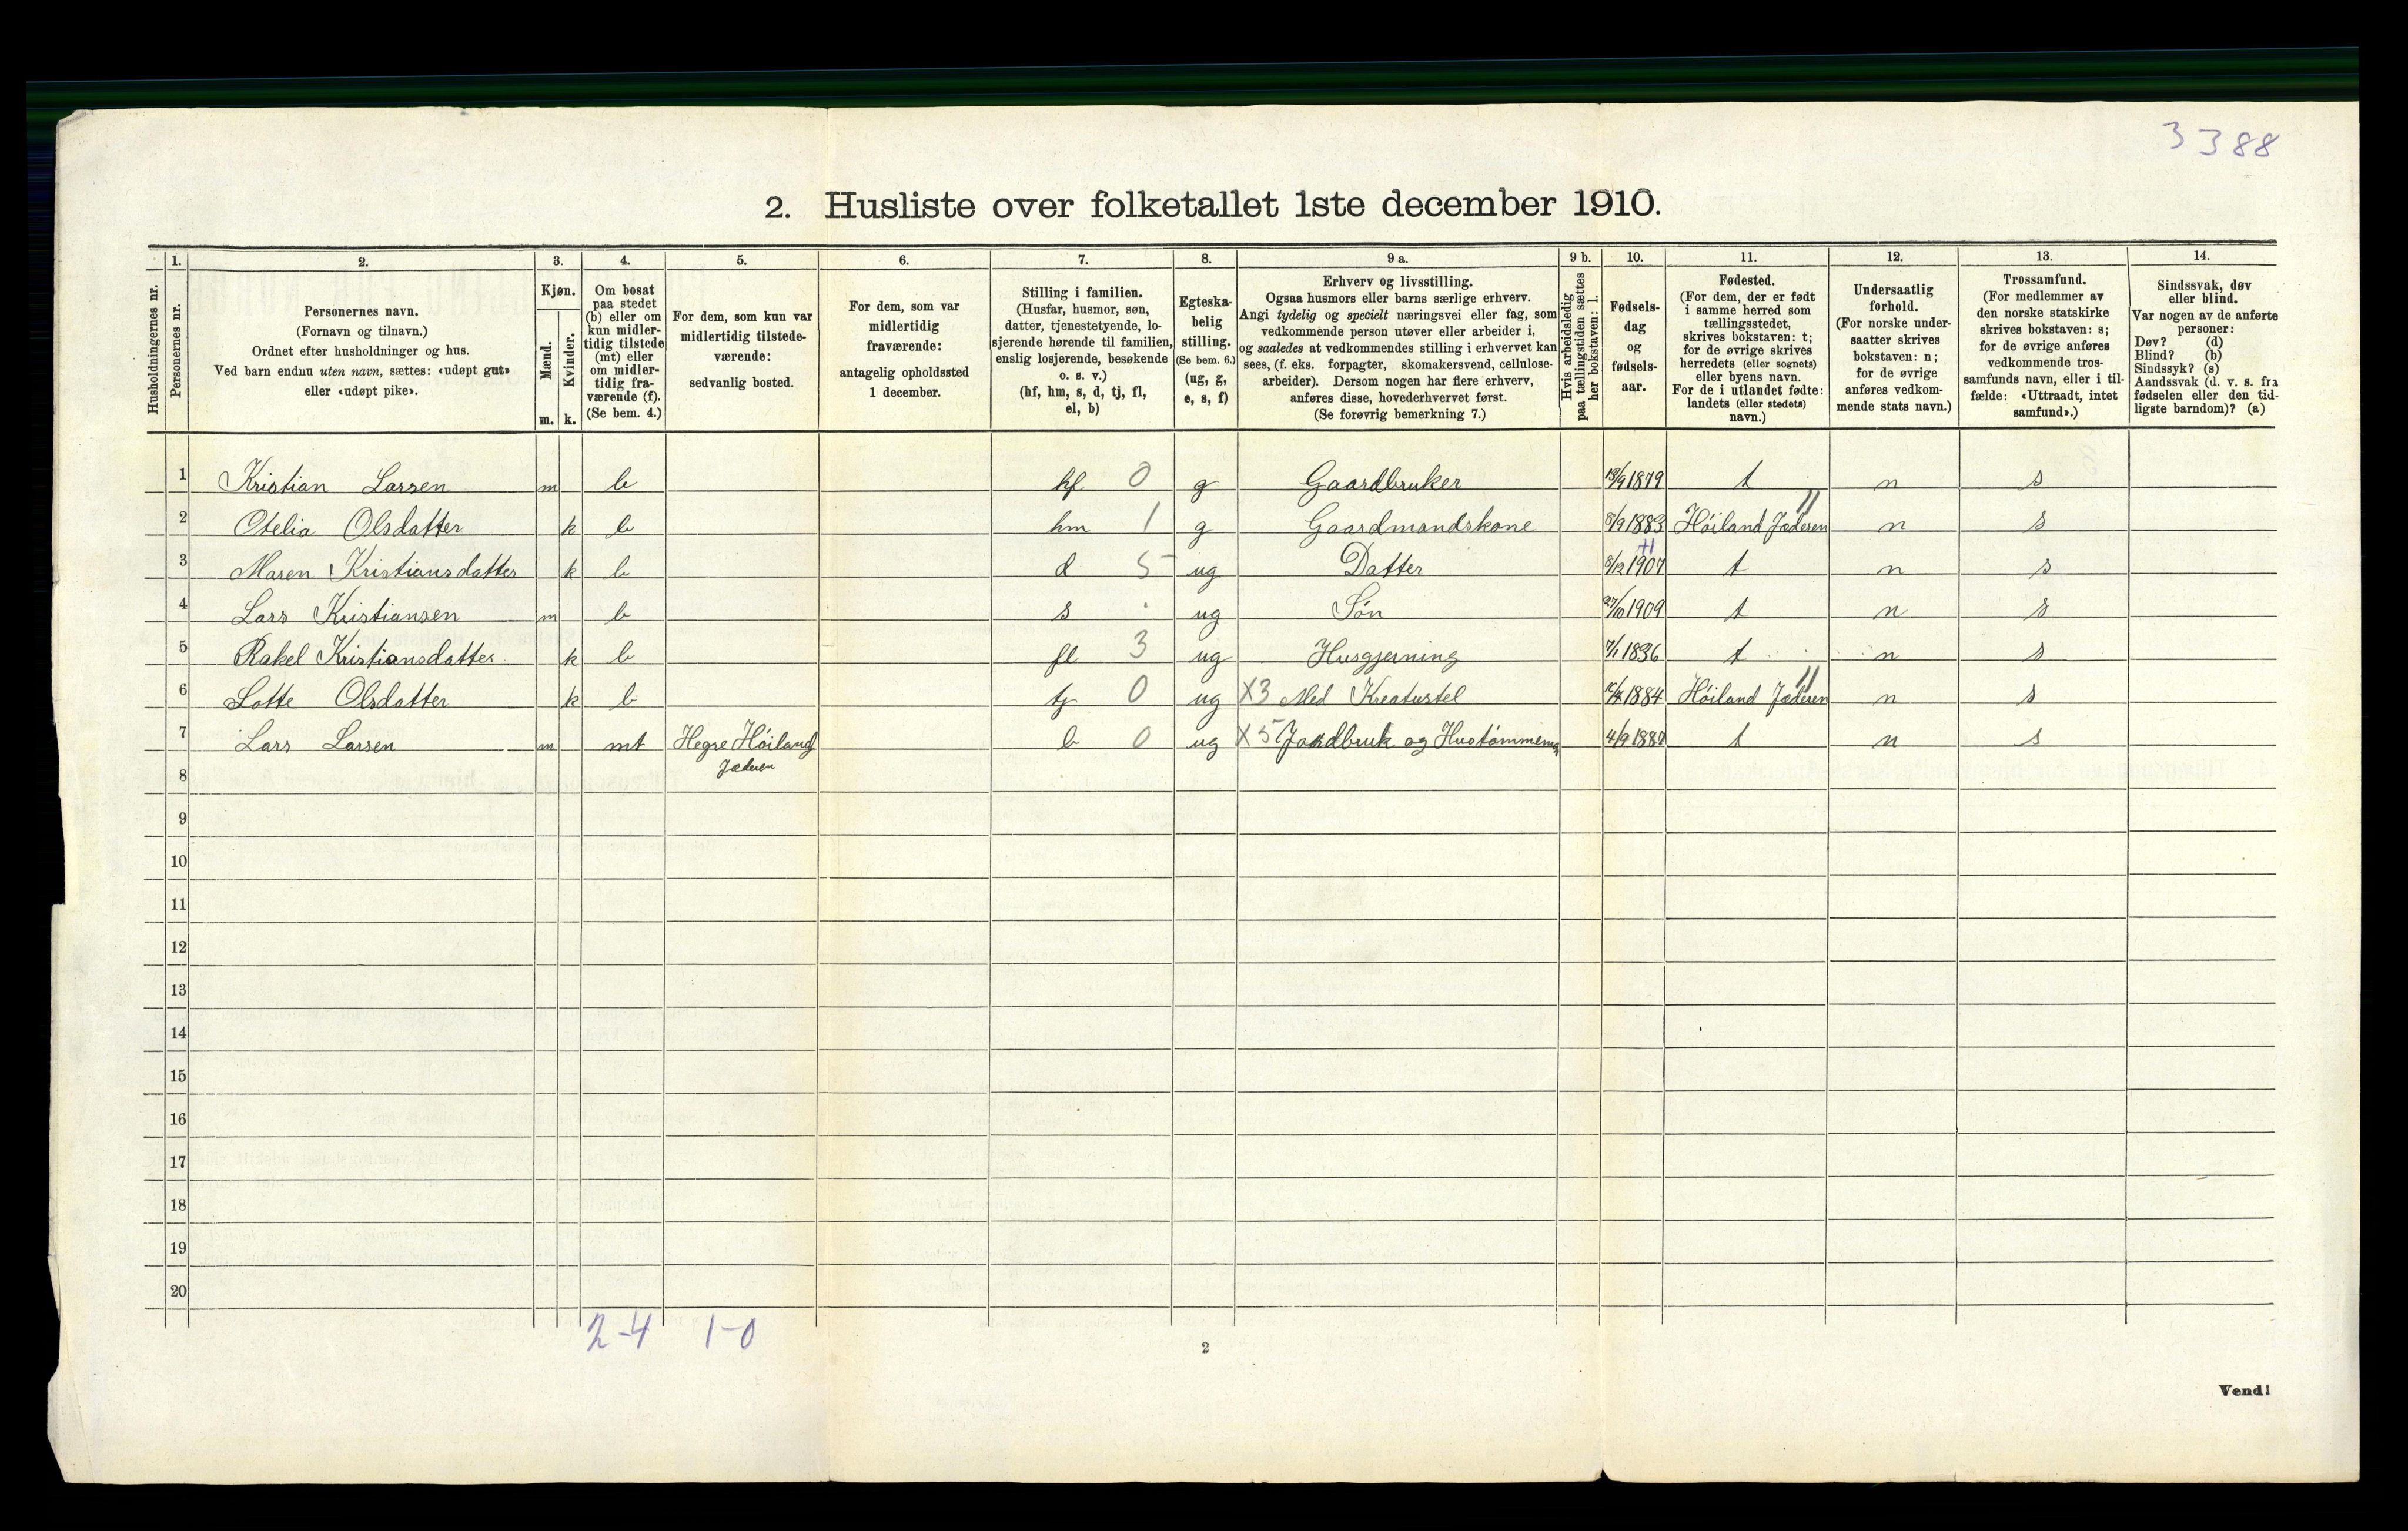 3388
2. Husliste over folketallet 1ste december 1910.
Husholdningernes nr.
1.
Personernes nr.
2.
Personernes navn.
(Fornavn og tilnavn.)
Ordnet efter husholdninger og hus.
Ved barn endnu uten navn, sættes: «udøpt gut»
eller «udøpt pike».
3.
Kjøn.
Mænd.
Kvinder.
m. k.
4.
Om bosat
paa stedet
(b) eller om
kun midler-
tidig tilstede
(mt) eller
om midler-
tidig fra-
værende (f).
(Se bem. 4.)
5.
For dem, som kun var
midlertidig tilstede-
værende:
sedvanlig bosted.
6.
For dem, som var
midlertidig
fraværende:
antagelig opholdssted
1 december.
7.
Stilling i familien.
(Husfar, husmor, søn,
datter, tjenestetyende, lo-
sjerende hørende til familien,
enslig losjerende, besøkende
o. s. v.)
(hf, hm, s, d, tj, fl,
el, b)
8.
Egteska-
belig
stilling.
(Se bem. 6.)
(ug, g,
e, s, f)
9 a.
Erhverv og livsstilling.
Ogsaa husmors eller barns særlige erhverv.
Angi tydelig og specielt næringsvei eller fag, som
vedkommende person utøver eller arbeider i,
og saaledes at vedkommendes stilling i erhvervet kan
sees, (f. eks. forpagter, skomakersvend, cellulose-
arbeider). Dersom nogen har flere erhverv,
anføres disse, hovederhvervet først.
(Se forøvrig bemerkning 7.)
9 b.
Hvis arbeidsledig
paa tællingstiden sættes
her bokstaven: l.
10.
Fødsels-
dag
og
fødsels-
aar.
11.
Fødested.
(For dem, der er født
i samme herred som
tællingsstedet,
skrives bokstaven: t;
for de øvrige skrives
herredets (eller sognets)
eller byens navn.
For de i utlandet fødte:
landets (eller stedets)
navn.)
12.
Undersaatlig
forhold.
(For norske under-
saatter skrives
bokstaven: n;
for de øvrige
anføres vedkom-
mende stats navn.)
13.
Trossamfund.
(For medlemmer av
den norske statskirke
skrives bokstaven: s;
for de øvrige anføres
vedkommende tros-
samfunds navn, eller i til-
fælde: «Uttraadt, intet
samfund».)
14.
Sindssvak, døv
eller blind.
Var nogen av de anførte
personer:
Døv? (d)
Blind? (b)
Sindssyk? (s)
Aandssvak (d. v. s. fra
fødselen eller den tid-
ligste barndom)? (a)
1 Kristian Larsen m b hf 0 g Gaardbruker 1879 t n s
2 Otelia Olsdatter k b hm 1 g Gaardmandskone 8/9 1883 Høiland Jæderen n s
3 Maren Kristiansdatter k b d 5 ug Datter 8/12 1907 t n s
4 Lars Kristiansen m b s ug Søn 27/10 1909 t n s
5 Rakel Kristiansdatter k b fl 3 ug Husgjerning 7/1 1836 t n s
6 Lotte Olsdatter k b tj 0 ug X3 Med Kreaturstel 1884 Høiland Jæderen n s
7 Lars Larsen m mt Hegre Høiland b 0 ug X5 Jordbruk og 4/9 t n s
Jæderen
8
9
10
11
12
13
14
15
16
17
18
19
20
2-4 1-0
2
Vend!